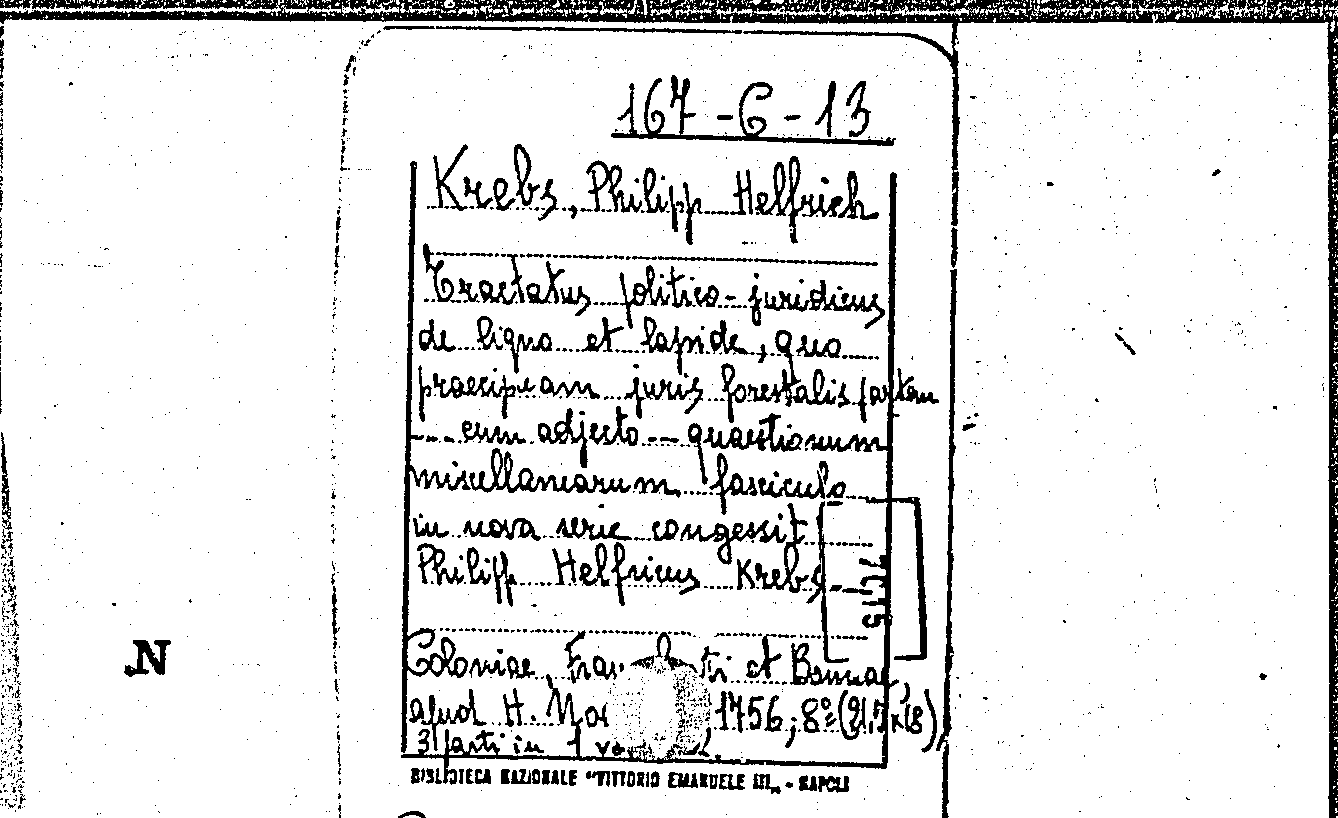 167-6-13
Krebs, Philipp Helfrich
Tractatus politico-juridicus
de ligno et lapide, quo
praecipuam juris forestalis partem
--- cum adjecto -- quaestionum
miscellanearum fasciculo
in nova serie congessit
Philipp Helfricus Krebs --
7015
Coloniae, et Bonnae,
apud H. 1756; 8º (21,7x18)
3 parti in 1
BIBLIOTECA NAZIONALE "VITTORIO EMANUELE III„ - NAPOLI
N